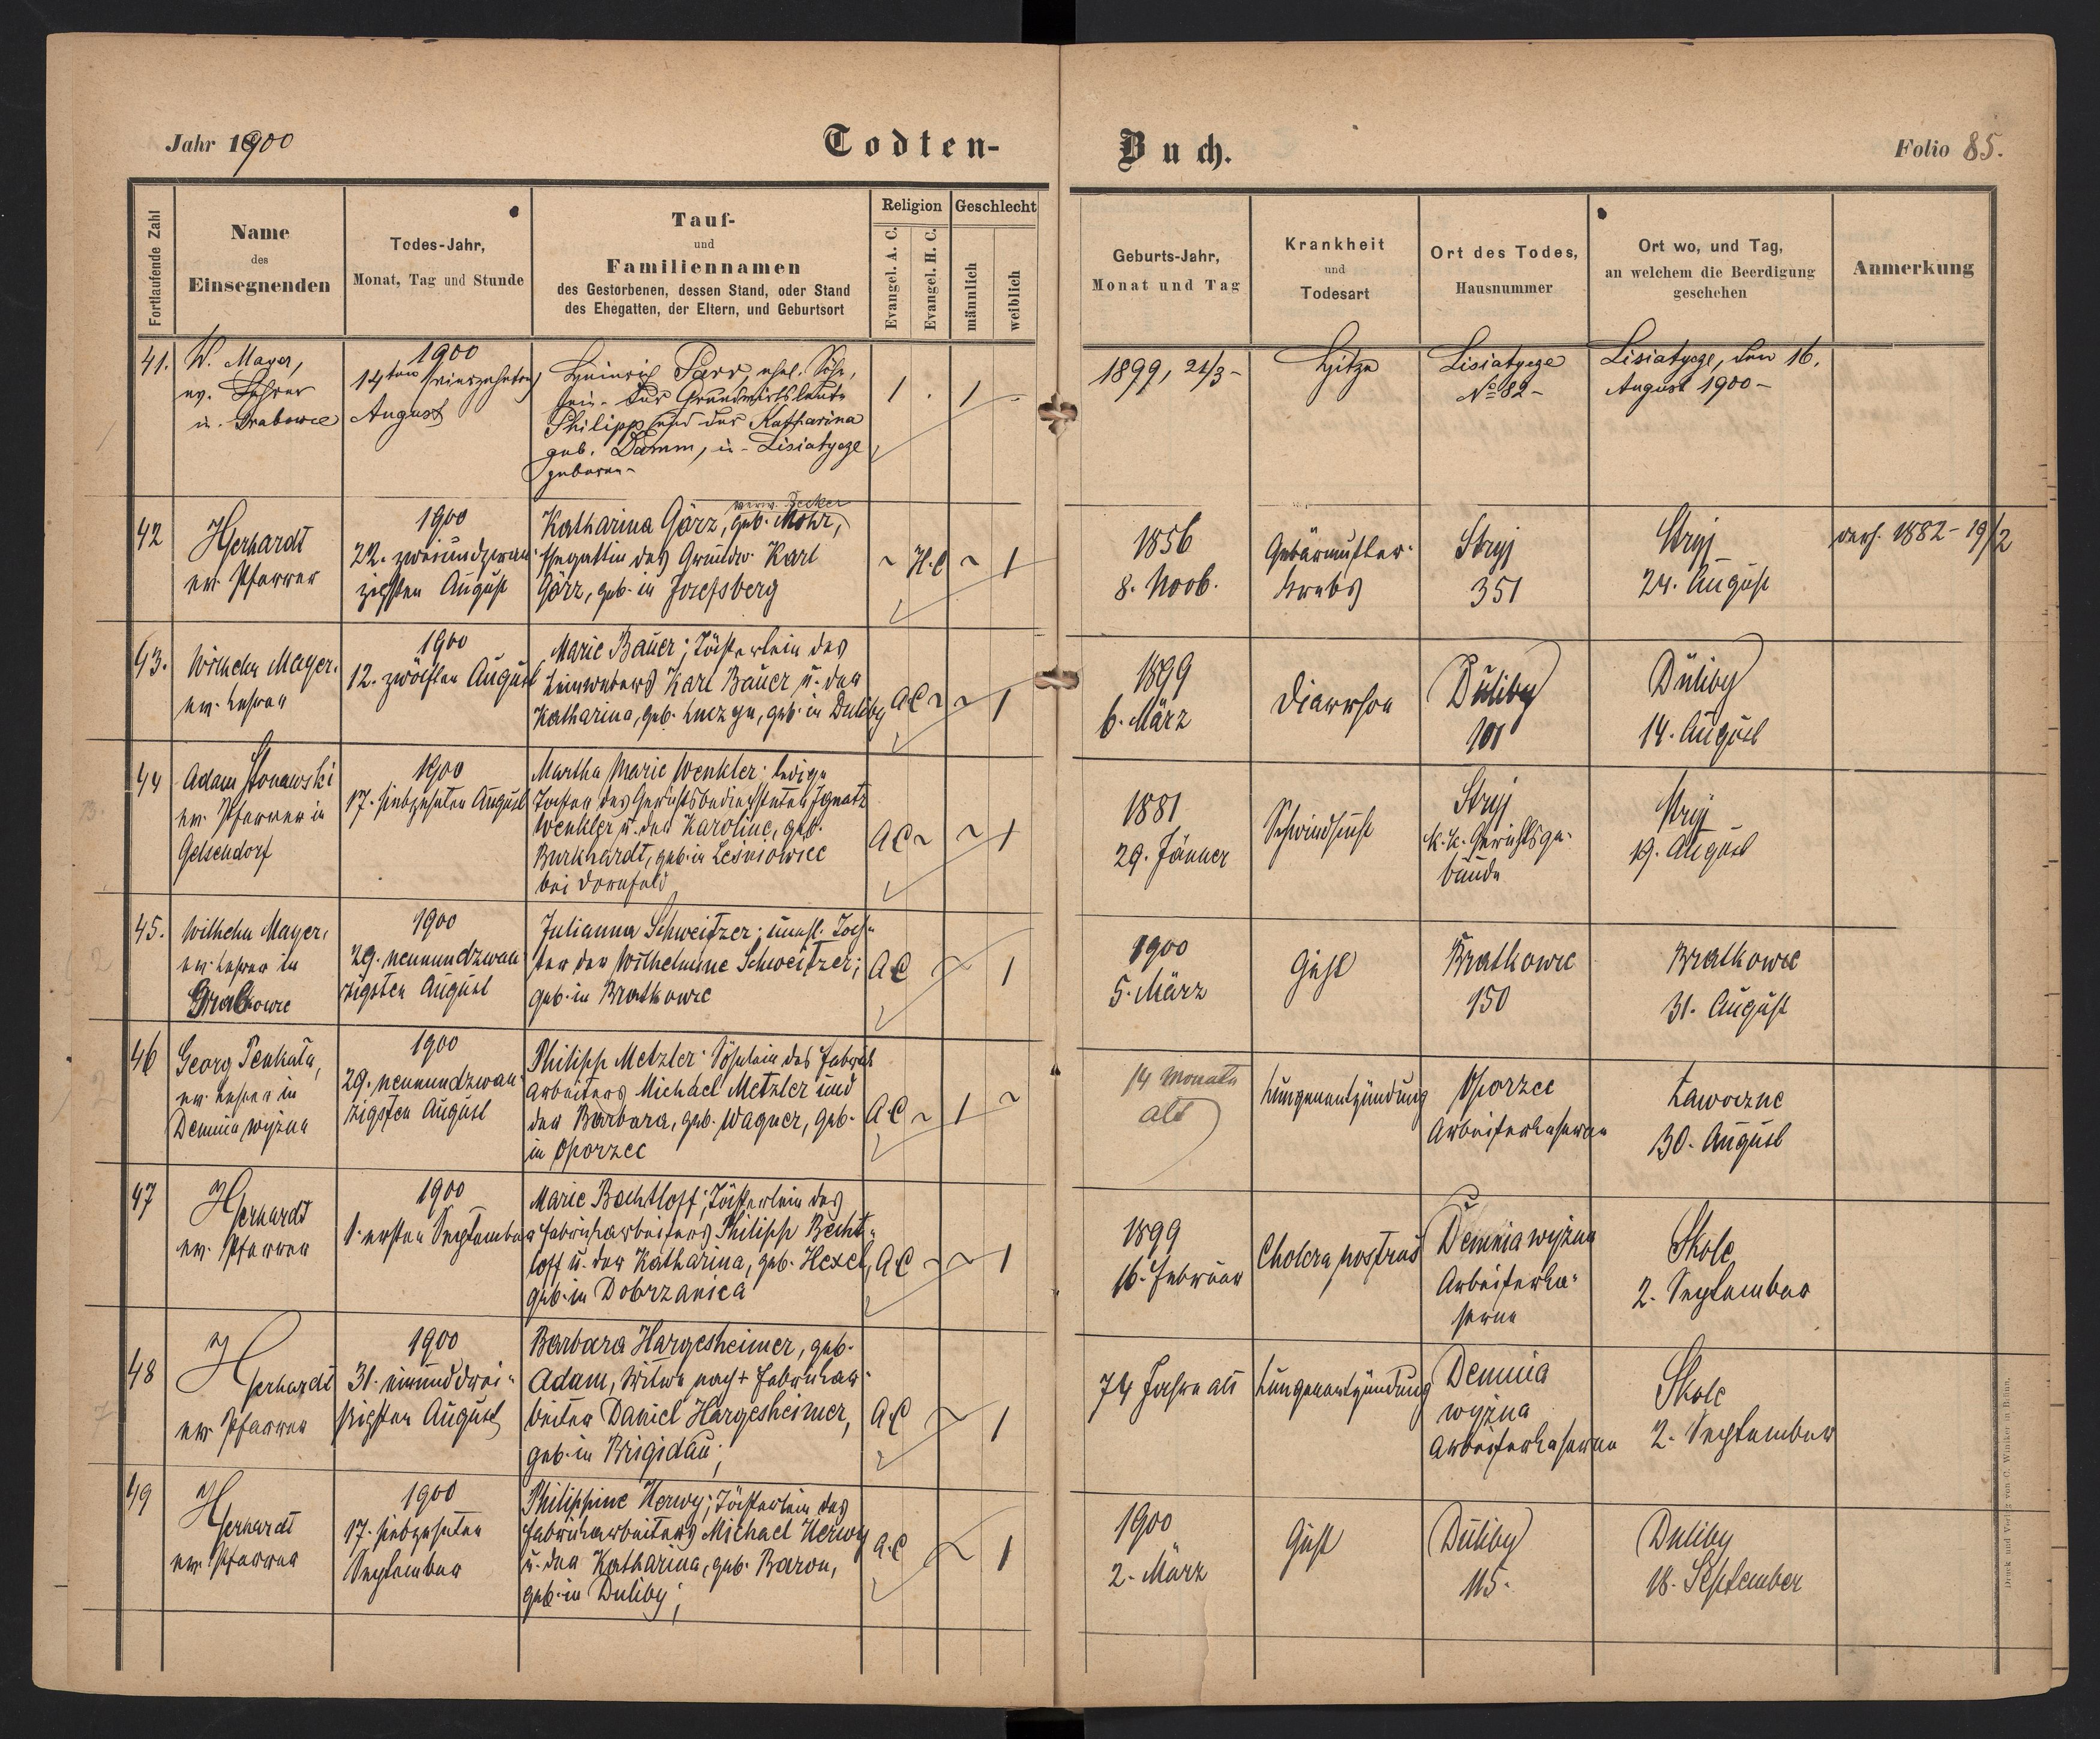 Jahr 1900
Todten-
Buch.
Folio 85.
Fortlaufende Zahl
Name
des
Einsegnenden
Todes-Jahr,
Monat, Tag und Stunde
Tauf-
und
Familiennamen
des Gestorbenen, dessen Stand, oder Stand
des Ehegatten, der Eltern, und Geburtsort
Religion
Evangel. A. C.
Evangel. H. C.
Geschlecht
männlich
weiblich
Geburts-Jahr,
Monat und Tag
Krankheit
und
Todesart
Ort des Todes,
Hausnummer
Ort wo, und Tag,
an welchem die Beerdigung
geschehen
Anmerkung
41.
W. Mayer,
ev. Lehrer
in Grabowce
1900
14ten (vierzehnten)
August
Heinrich Parr, ehel. Söhn,
lein der Grundwirtsleute
Philipp und der Katharina
geb. Damm, in Lisiatycze
geboren
1 . 1 .
1899, 21/3 -
Hitze
Lisiatycze
No 82 -
Lisiatycze, den 16.
August 1900 -
42
Gerhardt
ev. Pfarrer
1900
22. zweiundzwan-
zigsten August
verw. Becker
Katharina Görz, geb. Mohr,
Ehegattin des Grundw. Karl
Görz, geb. in Josefsberg
~ H.C ~ 1
1856
8. Novb.
Gebärmutter-
krebs
Stryj
351
Stryj
24. August
verh. 1882 - 19/2
43.
Wilhelm Mayer.
ev. Lehrer
1900
12. zwölften August
Marie Bauer; Töchterlein des
Leinwebers Karl Bauer u. der
Katharina, geb. in Duliby
A.C ~ ~ 1
1899
6. März
Diarrhoe
Duliby
101
Duliby
14. August
44
Adam Stonawski
ev. Pfarrer in
Gelsendorf
1900
17. siebzehnten August
Martha Marie Wenkler; ledige
Tochter des Gerichtsbediensteten Ignatz
Wenkler u. der Karoline, geb.
Burkhardt, geb. in Leśniowice
bei Dornfeld
A.C ~ ~ 1
1881
29. Jänner
Schwindsucht
Stryj
k. k. Gerichtsge-
bäude
Stryj
19. August
45.
Wilhelm Mayer,
ev. Lehrer in
Grabowce
1900
29. neunundzwan-
zigsten August
Julianna Schweitzer; unehl. Toch-
ter der Wilhelmine Schweitzer;
geb. in Bratkowce
A.C ~ 1
1900
5. März
Gicht
Bratkowce
150
Bratkowce
31. August
46
Georg Penkala,
ev. Lehrer in
Demnia wyżna
1900
29. neunundzwan-
zigsten August
Philipp Metzler; Söhnlein des Fabriks
arbeiters Michael Metzler und
der Barbara, geb. Wagner, geb.
in Oporzec
A.C ~ 1 ~
14 Monate
alt
Lungenentzündung
Oporzec
Arbeiterkaserne
Ławoczne
30. August
47
Gerhardt
ev. Pfarrer
1900
1. ersten September
Marie Bechtloff; Töchterlein des
Fabriksarbeiters Philipp Becht-
loff u. der Katharina, geb. Hexel,
geb. in Dobrzanica
A.C ~ ~ 1
1899
16. Februar
Cholera nostras
Demnia wyżna
Arbeiterka-
serne
Skole
2. September
48
Gerhardt
ev. Pfarrer
1900
31. einunddrei-
sigsten August
Barbara Hargesheimer, geb.
Adam, Witwe nach + Fabriksar-
beiter Daniel Hargesheimer,
geb. in Brigidau;
A.C ~ 1
74 Jahre alt
Lungenentzündung
Demnia
wyżna
Arbeiterkaserne
Skole
2. September
49
Gerhardt
ev. Pfarrer
1900
17. siebzehnten
September
Philippine Herwy; Töchterlein des
Fabriksarbeiters Michael Herwy
u. der Katharina, geb. Baron,
geb. in Duliby;
A.C ~ 1
1900
2. März
Gicht
Duliby
115.
Duliby
18. September
Druck und Verlag von C. Winiker in Brünn.